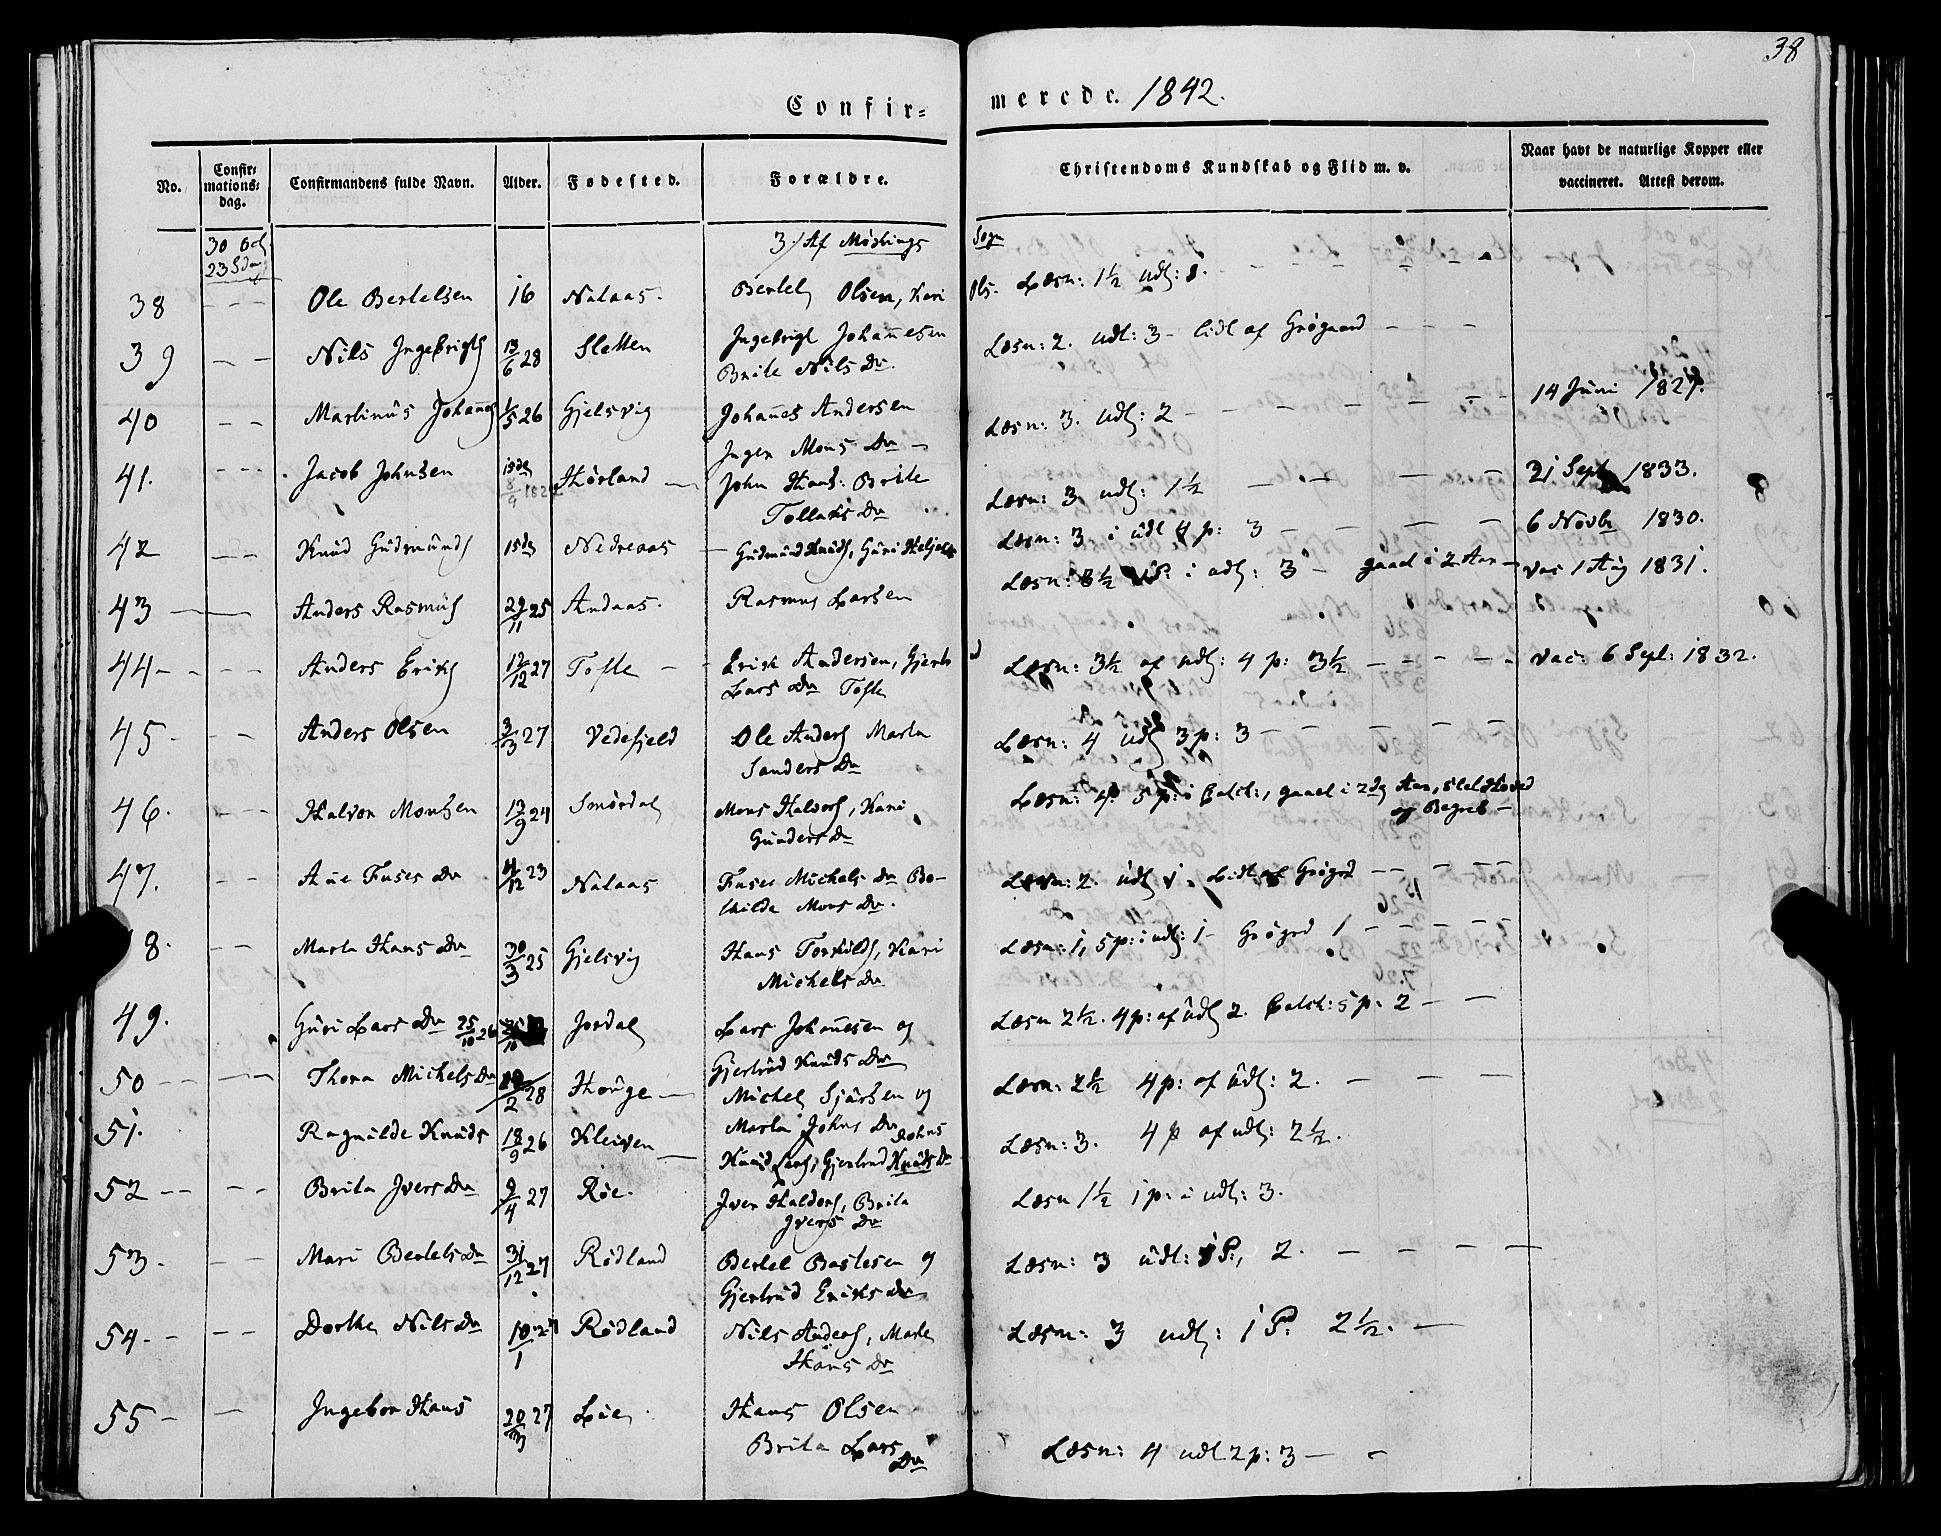 38
Confir= merede. 1842.
No. Confir= mations= dag. Confirmandens fulde Navn. Alder. Fødested. Forældre. Christendoms Kundskab og Flid m. v. Naar havt de naturlige Kopper eller vaccineret. Attest derom.
30 Oct. 3/ Af Mødings Sogn
23 Sdag
38 - - - Ole Bertelsen 16 Nataas. Bertel Olsen, Kari Ols. Læsn: 1½ udl:
39 - - Nils Ingebrigts 13/6 28 Sletten Ingebrigt Johannesen Læsn: 2. udl: 3 - lidt af Grøgaard - - -
Brite Nils Dr.
40 - - Martinus Johannes 1/5 26 Gjelsvig Johanes Andersen Læsn: 3. udl: 2 - - - - - 14 Juni 1827.
Inger Mons Dr -
41. - - - Jacob Johnsen Hørland John Hans: Brite Læsn: 3 udl: 1½ - - - - 21 Sept 1833.
Tollaks Dr
42 - - Knud Gudmunds Nedreaas - Gudmund Knuds, Guri Læsn: 3 i udl 4 p: 3 - - - - 6 Novbr 1830.
43 - - Anders Rasmus 29/11 25 Aadaas. Rasmus Larsen Læsn: 3½ i udl: 3 - gaael i 2 Aar - vac 1 Aug 1831.
44 - - - Anders Eriks 12/12 27 Tofte - - Erik Andersen, Gjert Læsn: 3½ af udl: 4 p: 3½ - - - - - vac: 6 Sept: 1832.
Lars Dr Tofte
45 - - - Anders Olsen 3/3 27 Vedefjeld Ole Anders Marta Læsn: 4 udl 3 p: 3 - - - - - - -
Sanders Dr
46. - - - Halvor Monsen 13/9 24 Smørdal Mons Halvors, Kari Læsn: 4. 5 p: i gaael i 2 Aar, slet Hoved
Gunders Dr og Begreb -
47. - - Ane Fuses Dr 4/12 23 Nataas Fuses Michels Dr Bo- Læsn: 2. udl Lidt af Grøgrd - - - - -
thilde Mons Dr.
8. - - Marta Hans Dr 30/3 25 Gjelsvig Hans Torkilds, Kari Læsn: 1, 5 p: i udl: 1 - Grøgrd 1 - - - - -
Michels Dr
49. Guri Lars Dr 25/10 26 Jordal Lars Johannesen og Læsn 2½. 4 p: af udl 2. 5 p: 2 - - -
Gjertrud Knuds Dr
50 - - - - - Thora Michels Dr /2 28 Houge - Michel Sjursen og Læsn: 2½ 4 p: af udl: 2. - - -
Marta Johns Dr
51. Ragnilde Knuds 18/9 26 Kleiven - Knud Lars, Gjertrud Knuds Dr Johns Læsn: 3. 4 p af udl: 2½.
52 - - - - Brita Ivers Dr 9/4 27 Røe. Iver Haldors, Brita Læsn 1½ 1 p: i udl: 3.
Ivers Dr
53. - - Mari Bertels Dr 31/12 27 Rødland Bertel Bastesen og Læsn: 3 udl: P:, 2. - - - -
Gjertrud Eriks Dr
54 - - - - Dorthe Nils Dr 10/1 27 Rødland Nils Anders, Marte Læsn: 3 udl: 1 P: 2½. -
Hans Dr
55 - - Ingebor Hans 20/3 27 Lie Hans Olsen Læsn: 4 udl 2 p: 3 - -
Brita Lars Dr